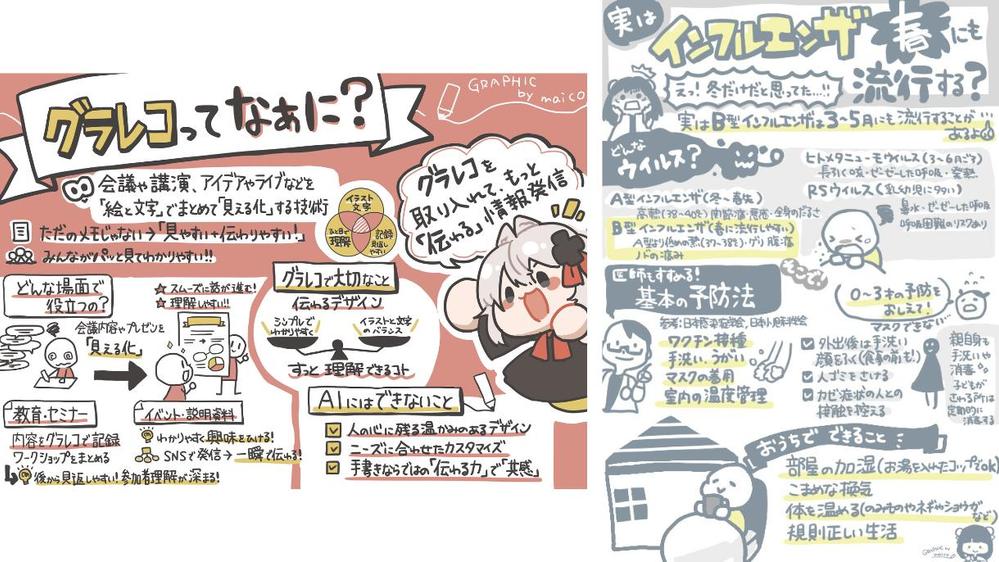 グラレコってなぁに?
GRAPHIC
by maico
会議や講演、アイデアやライブなどを
「絵と文字」でまとめて「見える化」する技術
ただのメモじゃない→「見やすい+伝わりやすい!」
みんながパッと見てわかりやすい!!
イラスト
文字
ひと目で
理解
記録
見返し
やすい
グラレコを
取り入れて、もっと
「伝わる」情報発信
どんな場面で
役立つの?
☆スムーズに話が進む!
☆理解しやすい!!
会議内容やプレゼンを
「見える化」
グラレコで大切なこと
伝わるデザイン
シンプルで
わかりやすく
イラストと文字
のバランス
すっと理解できるコト
教育・セミナー
内容をグラレコで記録
ワークショップをまとめる
後から見返しやすい!参加者理解が深まる!
イベント・説明資料
わかりやすく興味をひける!
SNSで発信→一瞬で伝わる!
AIにはできないこと
人の心に残る温かみのあるデザイン
ニーズに合わせたカスタマイズ
手書きならではの「伝わる力」で「共感」
実は
インフルエンザ春にも
流行する?
えっ!冬だけだと思ってた…!!
実はB型インフルエンザは3~5月にも流行することが
あるよ
どんな
ウイルス?
A型インフルエンザ(冬~春先)
高熱(38~40℃)関節痛・悪寒・全身のだるさ
B型インフルエンザ(春に流行しやすい)
A型より低めの熱(37~38℃)・ゲリ・腹痛
ノドの痛み
ヒトメタニューモウイルス(3~6月ごろ)
長引く咳・ゼーゼーした呼吸・発熱
RSウイルス(乳幼児に多い)
鼻水・ゼーゼーした呼吸
呼吸困難のリスクあり
医師もすすめる!
基本の予防法
参考:日本感染症学会、日本小児科学会
ワクチン接種
手洗い、うがい
マスクの着用
室内の温度管理
0~3才の予防を
おしえて!
マスクできない
外出後は手洗い
顔をふく(食事の前も!)
人ゴミをさける
カゼ症状の人との
接触を控える
親自身も
手洗いや
消毒。
子どもが
さわる所は
定期的に
消毒する
おうちでできること
部屋の加湿(お湯を入れたコップでもOK)
こまめな換気
体を温める(のみものやネギやショウガ
など)
規則正しい生活
GRAPHIC by
maico